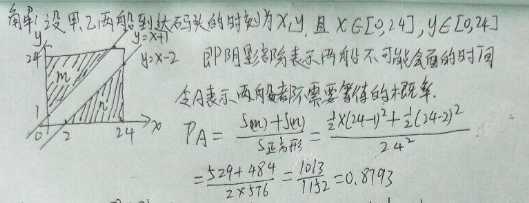 解:设甲乙两船到达码头的时刻为X,y,且X∈[0,24],y∈[0,24]
y
y=x+1
24
y=x-2
m
n
1
0 2 24 x
即阴影部分表示两船不可能会面的时间
令A表示两船都不需要等待的概率.
PA = S(m)+S(n) / S正方形 = ½×(24-1)²+½(24-2)² / 24²
= 529+484 / 2×576 = 1013 / 1152 = 0.8793